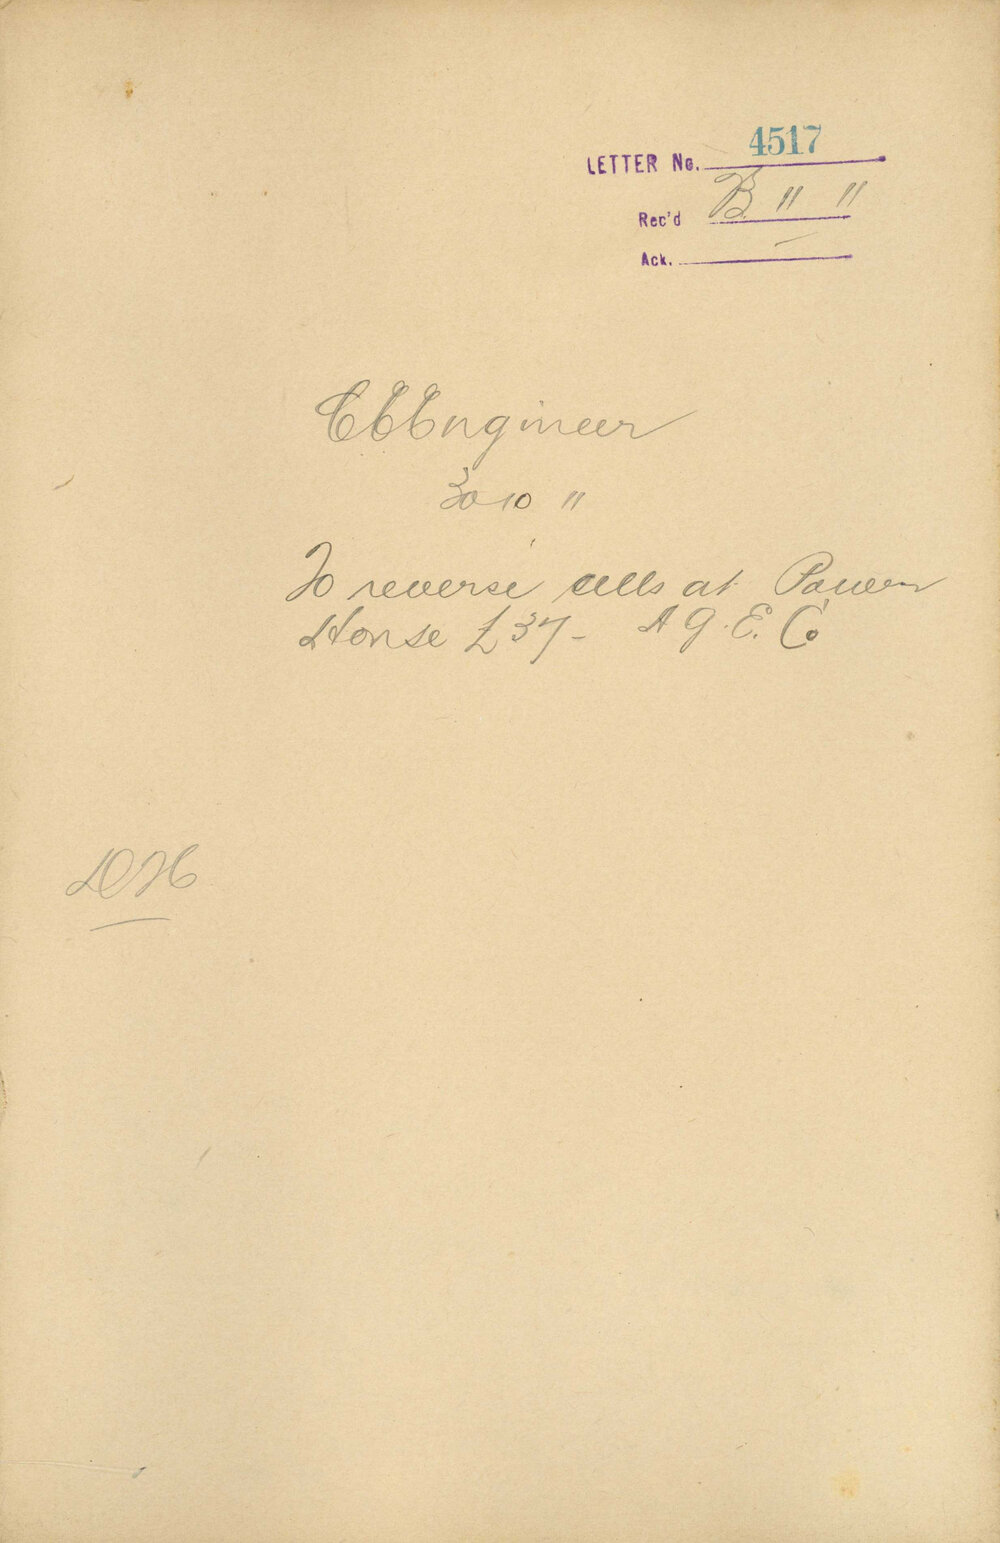 LETTER No. 4517
Rec'd B " "
Ack. —
C C Engineer
30 10 "
To reverse cells at Power
House £37 - A G. E. Co
DH